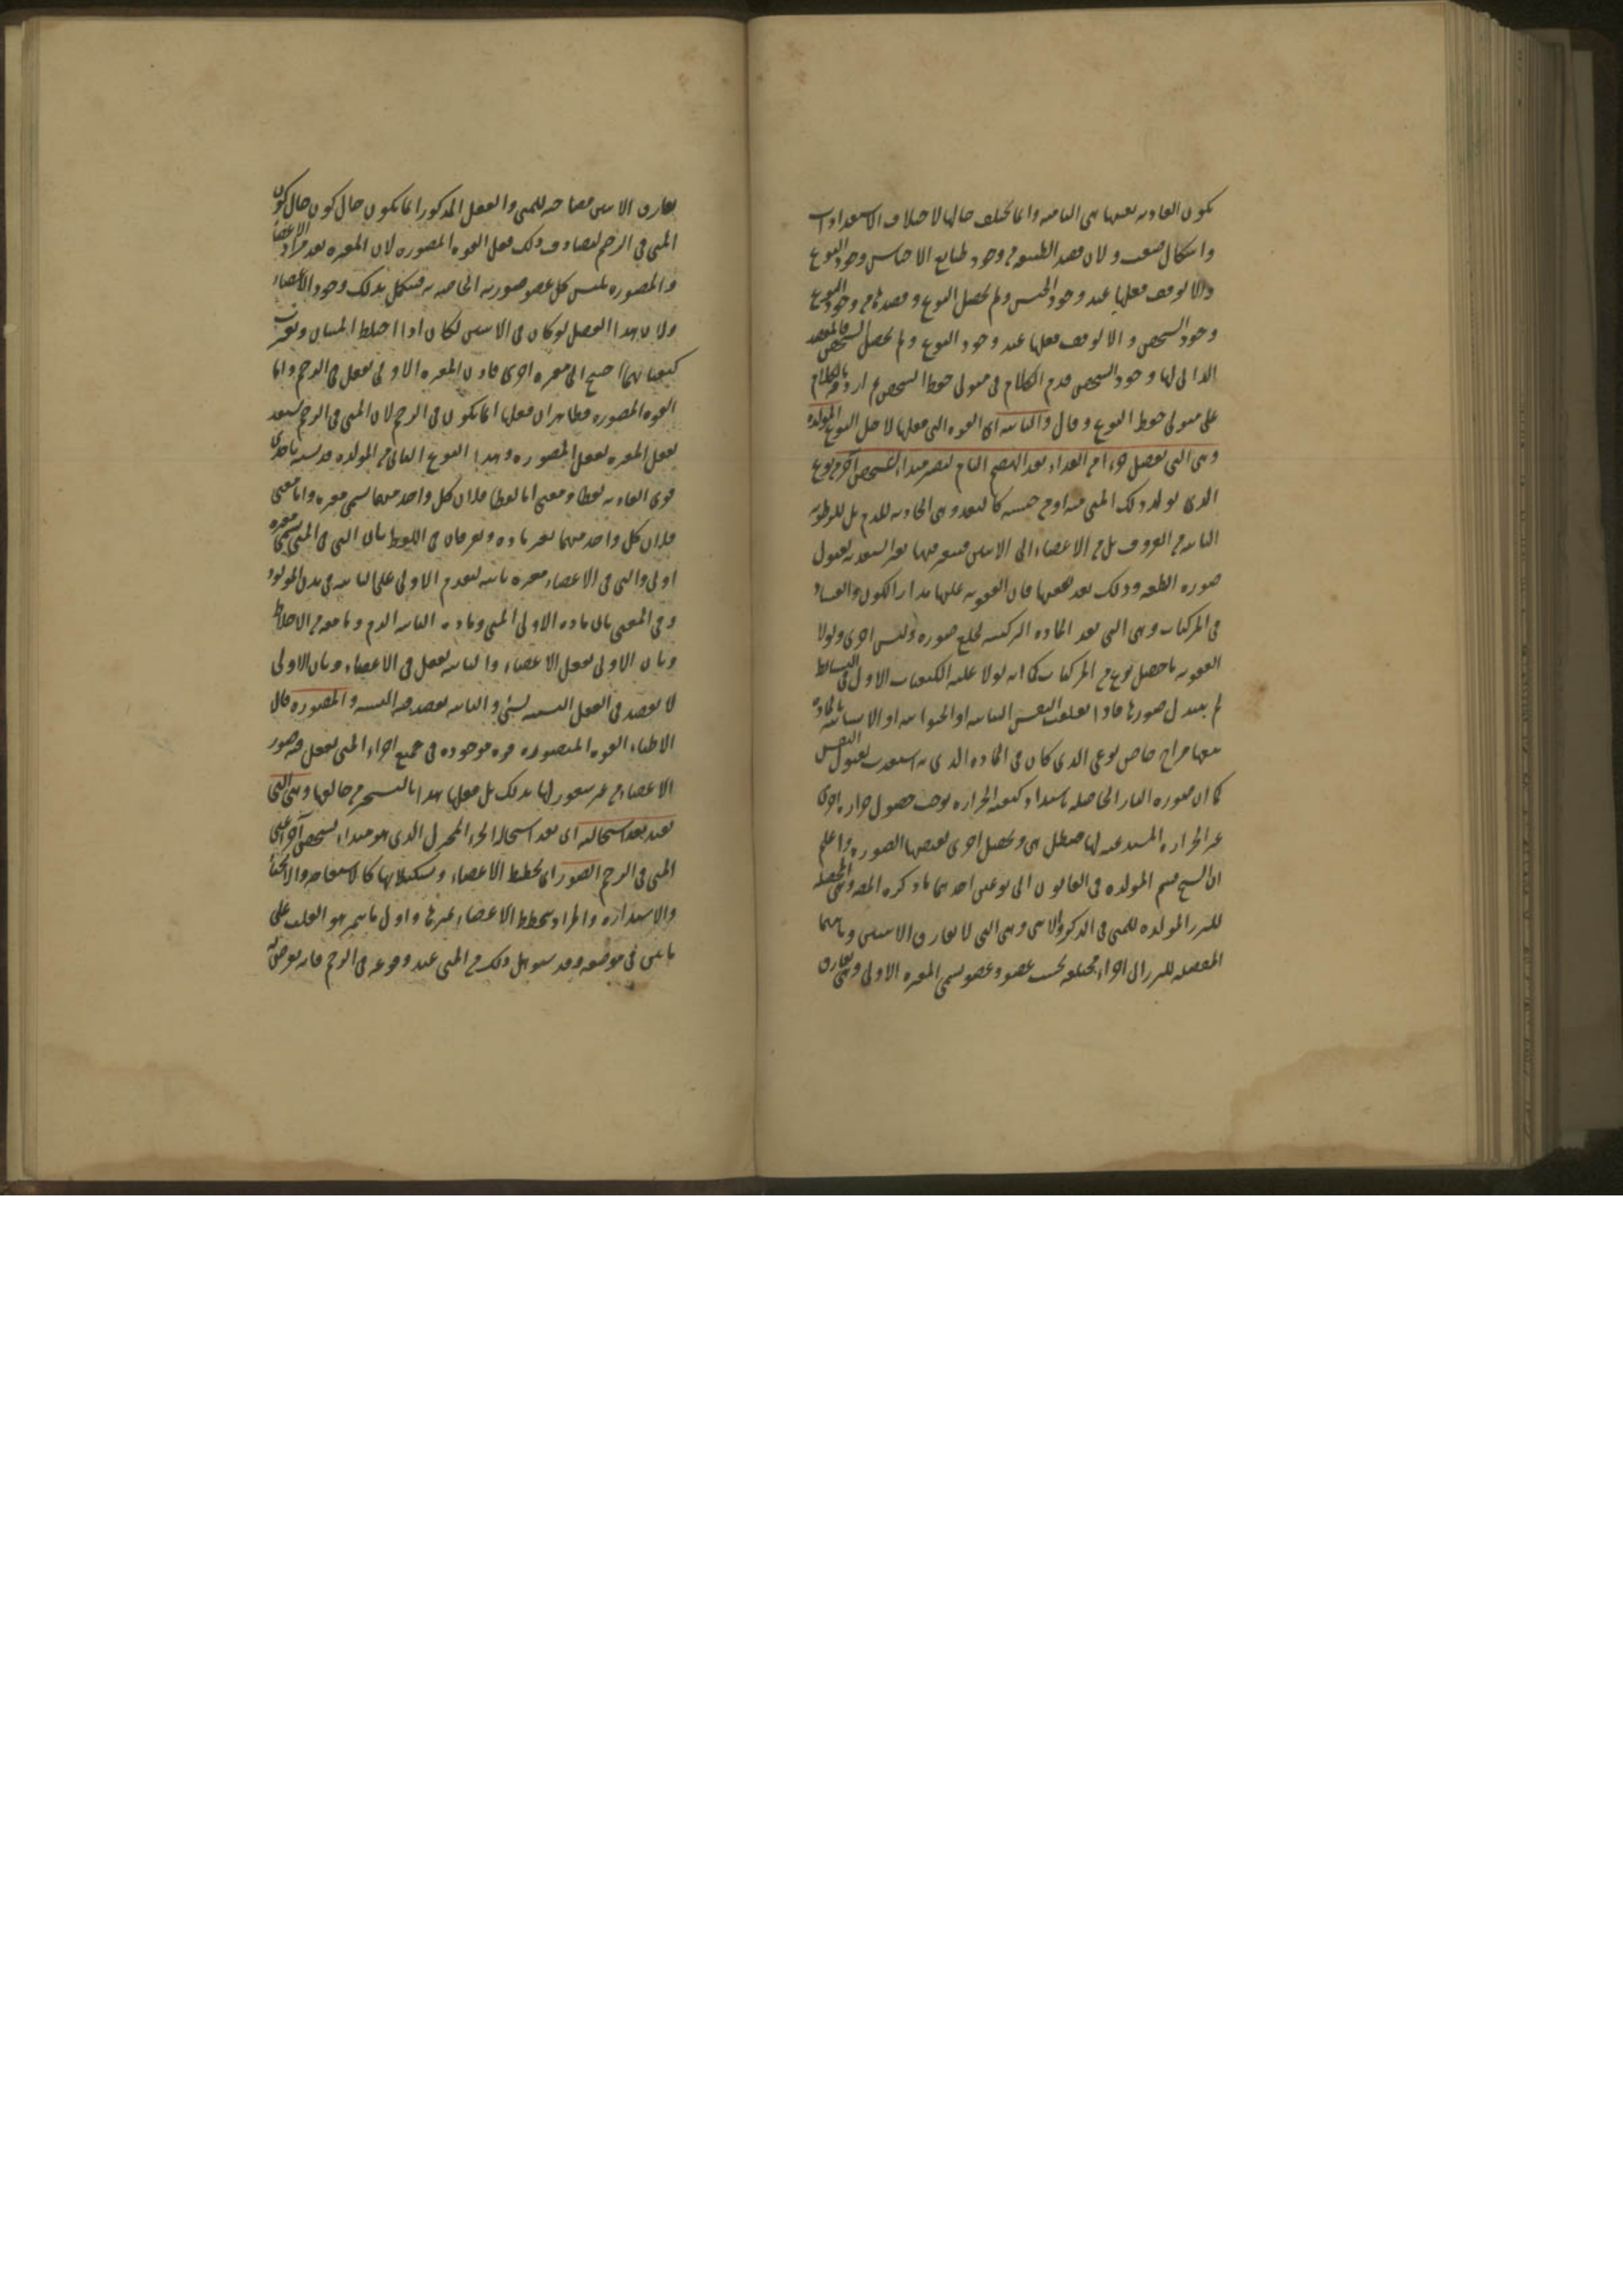 تكون الغاذية بعينها هي النامية وانما تختلف حالها لاختلاف الاستعدادات
واشكال صعب ولان قصد الطبيعة من وجود طبايع الاجناس وجود النوع
والا لوقف فعلها عند وجود الجنس ولم يحصل النوع وقصدها من وجود النوع
وجود الشخص والا لوقف فعلها عند وجود النوع ولم يحصل الشخص فالمقصد
الذاتي لها وجود الشخص قدم الكلام في متولي حفظ الشخص ثم اردفه بالكلام
على متولي حفظ النوع وقال والثانية اي القوة التي فعلها لاجل النوع المولدة
وهي التي تفصل جزءا من الغذاء بعد الهضم التام ليصير مبدا لشخص آخر من نوع
الذي تولد ذلك المني منه او من جنسه كالبغل وهي الجاذبة للدم بل للرطوبة
الثانية من العروق بل من الاعضاء الى الانثيين فتغيرها تغيرا يستعد به لقبول
صورة النطفة وذلك بعد تعفنها فان العفونة عليها مدار الكون والفساد
في المركبات وهي التي تعد المادة المركبة لخلع صورة ولبس اخرى ولولا
العفونة ما حصل نوع من المركبات كما انه لولا غلبة الكيفيات الاول في البسائط
لم تتبدل صورها فاذا تعلقت النفس النباتية او الحيوانية او الانسانية بالمادة
معها مزاج خاص نوعي الذي كان في المادة الذي به استعدت لقبول النفس
كما ان صورة النار الحاصلة باستعداد كيفية الحرارة توجب حصول حرارة اخرى
غير الحرارة المستدعية لها فتبطل هي وتحصل اخرى تقتضيها الصورة واعلم
ان الشيخ قسم المولدة في القانون الى نوعين احدهما ما ذكره المص وهي المحصلة
للبزر المولدة للمني في الذكر والانثى وهي التي لا تفارق الانثيين وثانيهما
المفصلة للبزر الى اجزاء مختلفة بحسب عضو وعضو تسمى المغيرة الاولى وهي تفارق
تفارق الانثيين مصاحبة للمني والفعل المذكور انما يكون حال كون حال كون
المني في الرحم ليصادف ذلك فعل القوة المصورة لان المغيرة تعد مواد الاعضاء
والمصورة تلبس كل عضو صورته الخاصة به فتكمل بذلك وجود الاعضاء
ولان هذا الفصل لو كان في الانثيين لكان اذا اختلط المنيان وتغيرت
كيفياتهما احتيج الى مغيرة اخرى فاذن المغيرة الاولى تفعل في الرحم واما
القوة المصورة فظاهر ان فعلها انما يكون في الرحم لان المني في الرحم يستعد
بفعل المغيرة لفعل المصورة وهذا النوع الثاني من المولدة قد يشتبه باحدى
قوى الغاذية لفظا ومعنى اما لفظا فلان كل واحد منهما يسمى مغيرة واما معنى
فلان كل واحد منهما تغير مادة وتفرقان في اللفظ بان التي في المني تسمى مغيرة
اولى والتي في الاعضاء مغيرة ثانية لتقدم الاولى على الثانية في بدن المولود
وفي المعنى بان مادة الاولى المني ومادة الثانية الدم وما معه من الاخلاط
وبان الاولى تفعل الاعضاء والثانية تفعل في الاعضاء وبان الاولى
لا تقصد في الفعل التشبيه بشيء والثانية تقصد فيه التشبيه والمصورة قال
الاطباء القوة المتصورة قوة موجودة في جميع اجزاء المني تفعل فيه صور
الاعضاء من غير شعور لها بذلك بل فعلها هذا بالتسخير من خالقها وهي التي
تفيد بعد استحالته اي بعد استحالة الجزء المحول الذي هو مبداء لشخص آخر اعني
المني في الرحم الصور اي تخطيط الاعضاء وتشكيلاتها كالاستقامة والانحناء
والاستدارة والمراد بتخطيط الاعضاء تميزها واول ما يتميز هو القلب على
ما بين في موضعه وقد سوهل ذلك من المني عند وقوعه في الرحم فانه يعرض له